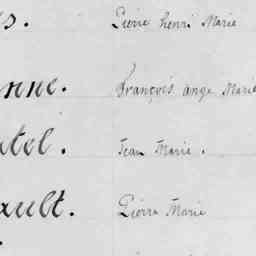 s. Pierre henri Marie
nne. françois ange Marie
atel. Jean Marie.
ault. Pierre Marie